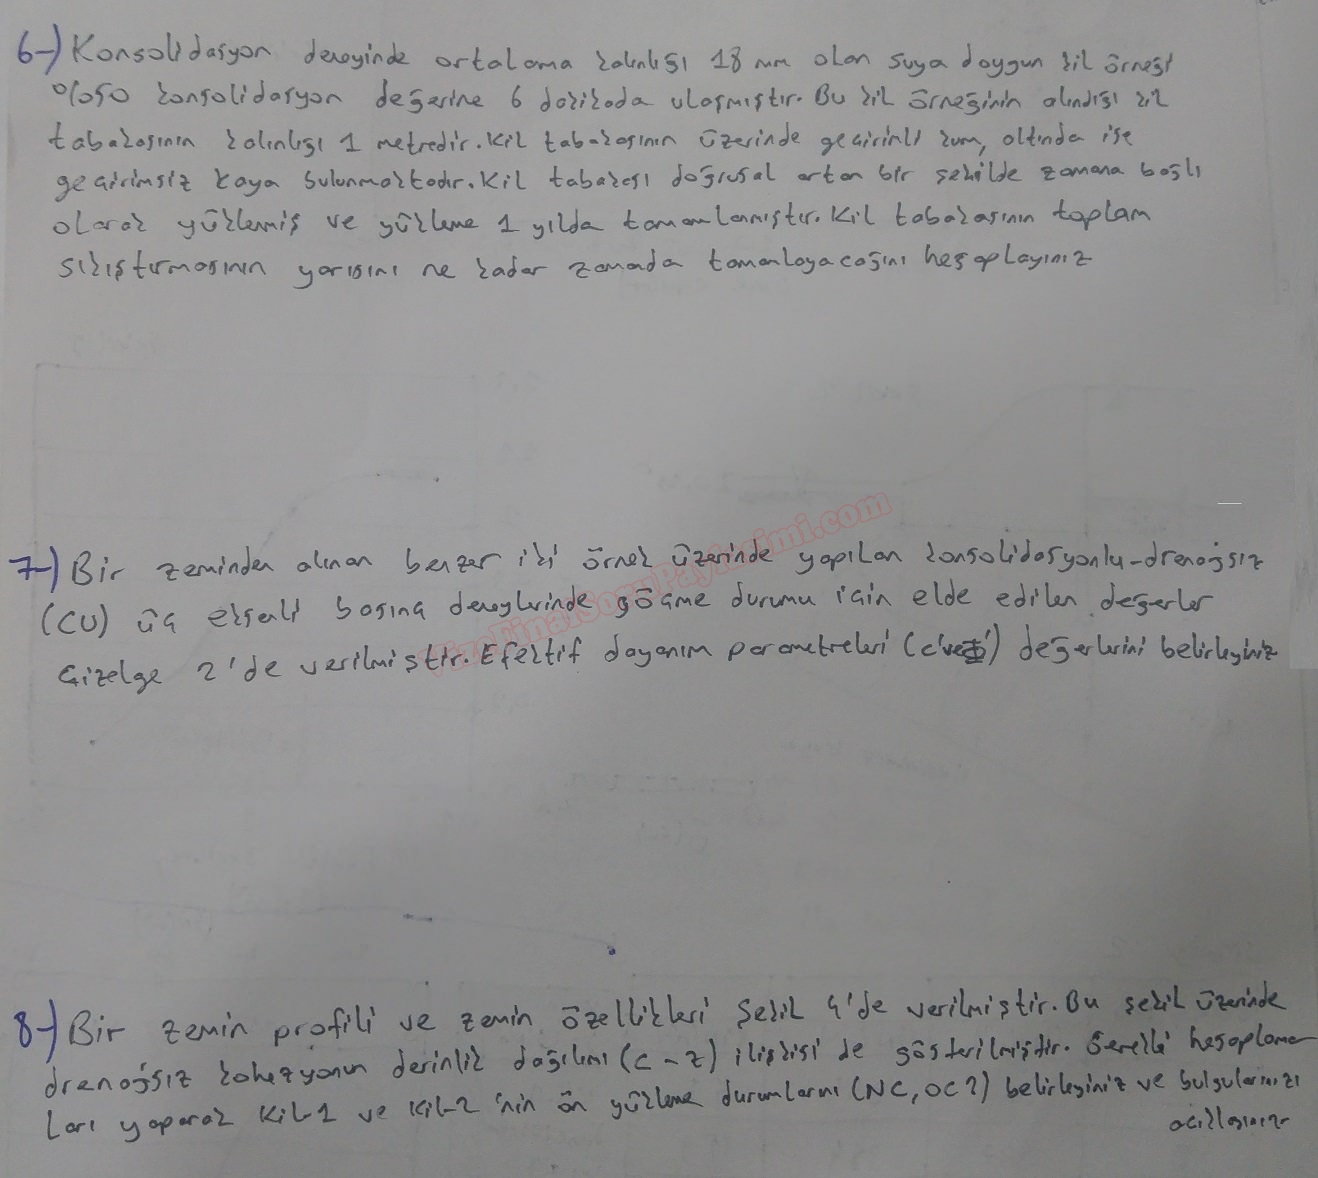 6-) Konsolidasyon deneyinde ortalama kalınlığı 18 mm olan suya doygun kil örneği
%50 konsolidasyon değerine 6 dakikada ulaşmıştır. Bu kil örneğinin alındığı kil
tabakasının kalınlığı 1 metredir. Kil tabakasının üzerinde geçirimli kum, altında ise
geçirimsiz kaya bulunmaktadır. Kil tabakası doğrusal artan bir şekilde zamana bağlı
olarak yüklenmiş ve yükleme 1 yılda tamamlanmıştır. Kil tabakasının toplam
sıkıştırmasının yarısını ne kadar zamanda tamamlayacağını hesaplayınız
7-) Bir zeminden alınan benzer iki örnek üzerinde yapılan konsolidasyonlu-drenajsız
(CU) üç eksenli basınç deneylerinde göçme durumu için elde edilen değerler
Çizelge 2'de verilmiştir. Efektif dayanım parametreleri (c' ve Φ') değerlerini belirleyiniz
VizeFinalSoruPaylasimi.com
8-) Bir zemin profili ve zemin özellikleri Şekil 4'de verilmiştir. Bu şekil üzerinde
drenajsız kohezyonun derinlik dağılımı (c-z) ilişkisi de gösterilmiştir. Gerekli hesaplama
ları yaparak Kil-1 ve Kil-2 'nin ön yükleme durumlarını (NC, OC?) belirleyiniz ve bulgularınızı
açıklayınız